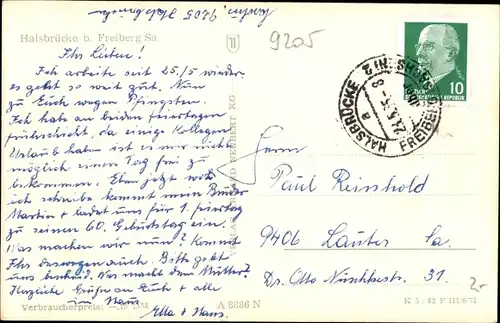 Martin, 9205 Halsbrücke
Halsbrücke b. Freiberg Sa.
9205
Ihr Leiben!
Ich arbeite seit 25./5 wieder,
es geht so weit gut. Nun
zu Euch wegen Pfingsten.
Ich habe an beiden feiertagen
frühschicht, da einige Kollegen
Urlaub haben ist es mir nicht
möglich einen Tag frei zu
bekommen. Eben jetzt wo
ich schreibe kommt mein Bruder
Martin + ladet uns für 1. feiertag
zu seinen 60. Geburtstag ein.
Was machen wir nun? Kommt
Ihr deswegen auch. Bitte gebt
uns bescheid. Was macht dem Mutter?
Herzliche Grüße an Euch + alle
im Haus
Ella + Hans.
Verbraucherpreis: —,18 DM
A 8886 N
10
DEUTSCHE DEMOKRATISCHE REPUBLIK
HALSBRÜCKE
FREIBERG
a
Herrn
Paul Reinhold
9406 Lauter Sa.
Dr. Otto Nuschkestr. 31.
2-
K 5/63 F III/6/79